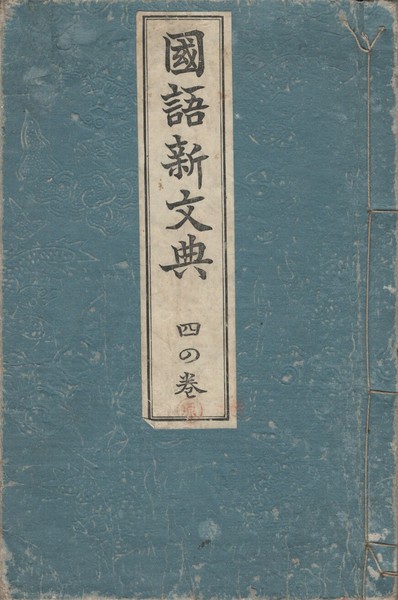 國語新文典
四の卷